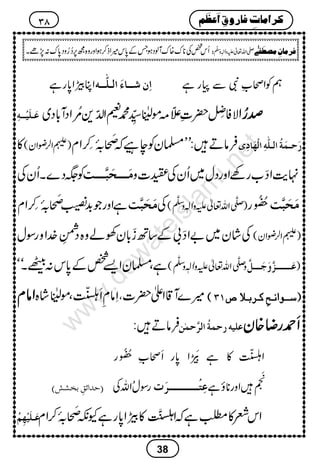 ۳۸ کراماتِ فاروقِ اعظم
فرمانِ مصطفٰے صلی اللہ تعالٰی علیہ واٰلہ وسلم: اُس شخص کی ناک خاک آلود ہو جس کے پاس میرا ذِکر ہو اور وہ مجھ پر دُرُود پاک نہ پڑھے۔
ہم کو اصحابِ نبی سے پیار ہے اِن شاءَ اللہ اپنا بیڑا پار ہے
صَدرُ الافاضِل حضرتِ علّامہ مولٰینا سیِّد محمد نعیم الدّین مُراد آبادی عَلَیْہِ
رَحمَۃُ اللہِ الْھَادِی فرماتے ہیں: ’’مسلمان کو چاہیے کہ صَحابۂ کِرام (علیہم الرضوان) کا
نہایت ادَب رکھے اور دل میں اُن کی عقیدت و مَحَبَّت کو جگہ دے۔ اُن کی
مَحَبَّت حُضُور (صلَّی اللہ تعالٰی علیہ واٰلہٖ وسلَّم) کی مَحَبَّت ہے اور جو بد نصیب صَحابۂ کِرام
(علیہم الرضوان) کی شان میں بے ادَبی کے ساتھ زَبان کھولے وہ دشمنِ خدا و رسول
(عَزَّوَجَلَّ وصلَّی اللہ تعالٰی علیہ واٰلہٖ وسلَّم) ہے، مسلمان ایسے شخص کے پاس نہ بیٹھے۔‘‘
(سوانحِ کربلا ص۳۱) میرے آقا اعلٰی حضرت، اِمامِ اَہلِسنّت، مولٰینا شاہ امام
اَحمد رضا خان علیہ رحمۃُ الرَّحمٰن فرماتے ہیں:
اہلسنّت کا ہے بَیڑا پار اَصحابِ حُضُور
نَجم ہیں اور ناؤ ہے عِترَت رسول اللہ کی (حدائقِ بخشش)
اس شعر کا مطلب ہے کہ اَہلسنّت کا بیڑا پار ہے کیونکہ صَحابۂ کِرام عَلَیْہِمُ
38
www.dawateislami.net